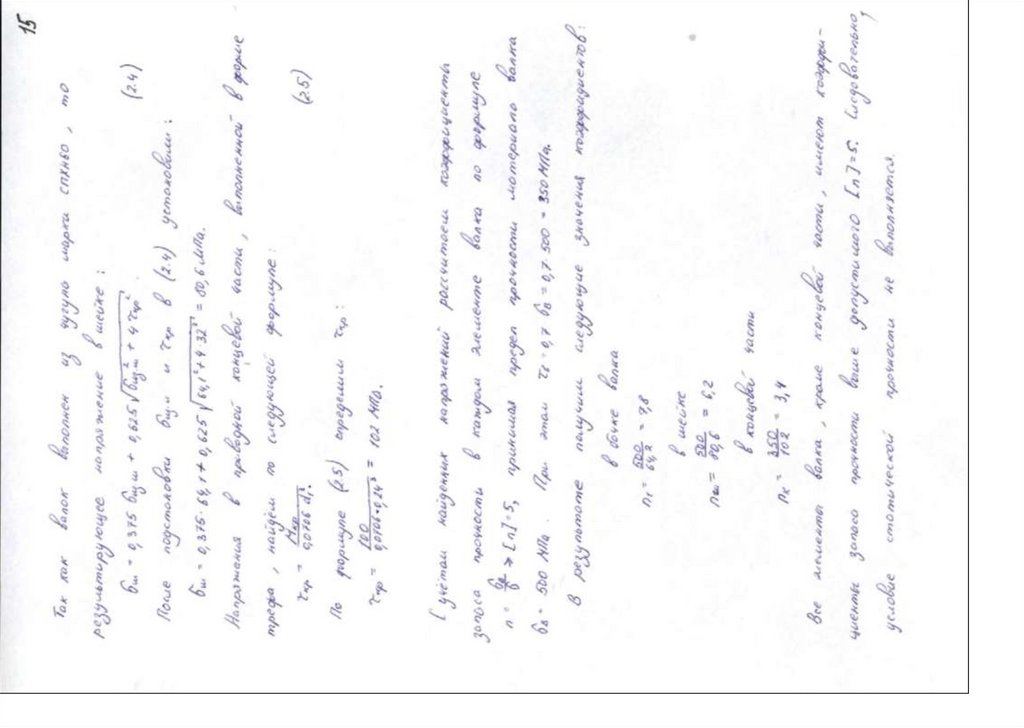 15
Так как валок выполнен из чугуна марки СПХНБО, то
результирующее напряжение в шейке:
σш = 0,375 σиз.ш + 0,625 √(σиз.ш² + 4 τкр²) (2.4)
После подстановки σи.ш и τкр в (2.4) установим:
σш = 0,375 · 64,1 + 0,625 √(64,1² + 4 · 32²) = 80,6 МПа.
Напряжения в приводной концевой части, выполненной в форме
трефа, найдём по следующей формуле:
τкр = Mкр / 0,0706 d₁³ (2.5)
По формуле (2.5) определим τкр:
τкр = 100 / 0,0706 · 0,24³ = 102 МПа.
С учётом найденных напряжений рассчитаем коэффициенты
запаса прочности в каждом элементе валка по формуле
n = σв/σ ≥ [n] = 5, принимая предел прочности материала валка
σв = 500 МПа. При этом τв = 0,7 σв = 0,7 · 500 = 350 МПа.
В результате получим следующие значения коэффициентов:
в бочке валка
= 500 / 64,2 = 7,8
в шейке
nш = 500 / 80,6 = 6,2
в концевой части
nк = 350 / 102 = 3,4
Все элементы валка, кроме концевой части, имеют коэффи-
циенты запаса прочности выше допустимого [n] = 5. Следовательно,
условие статической прочности не выполняется.